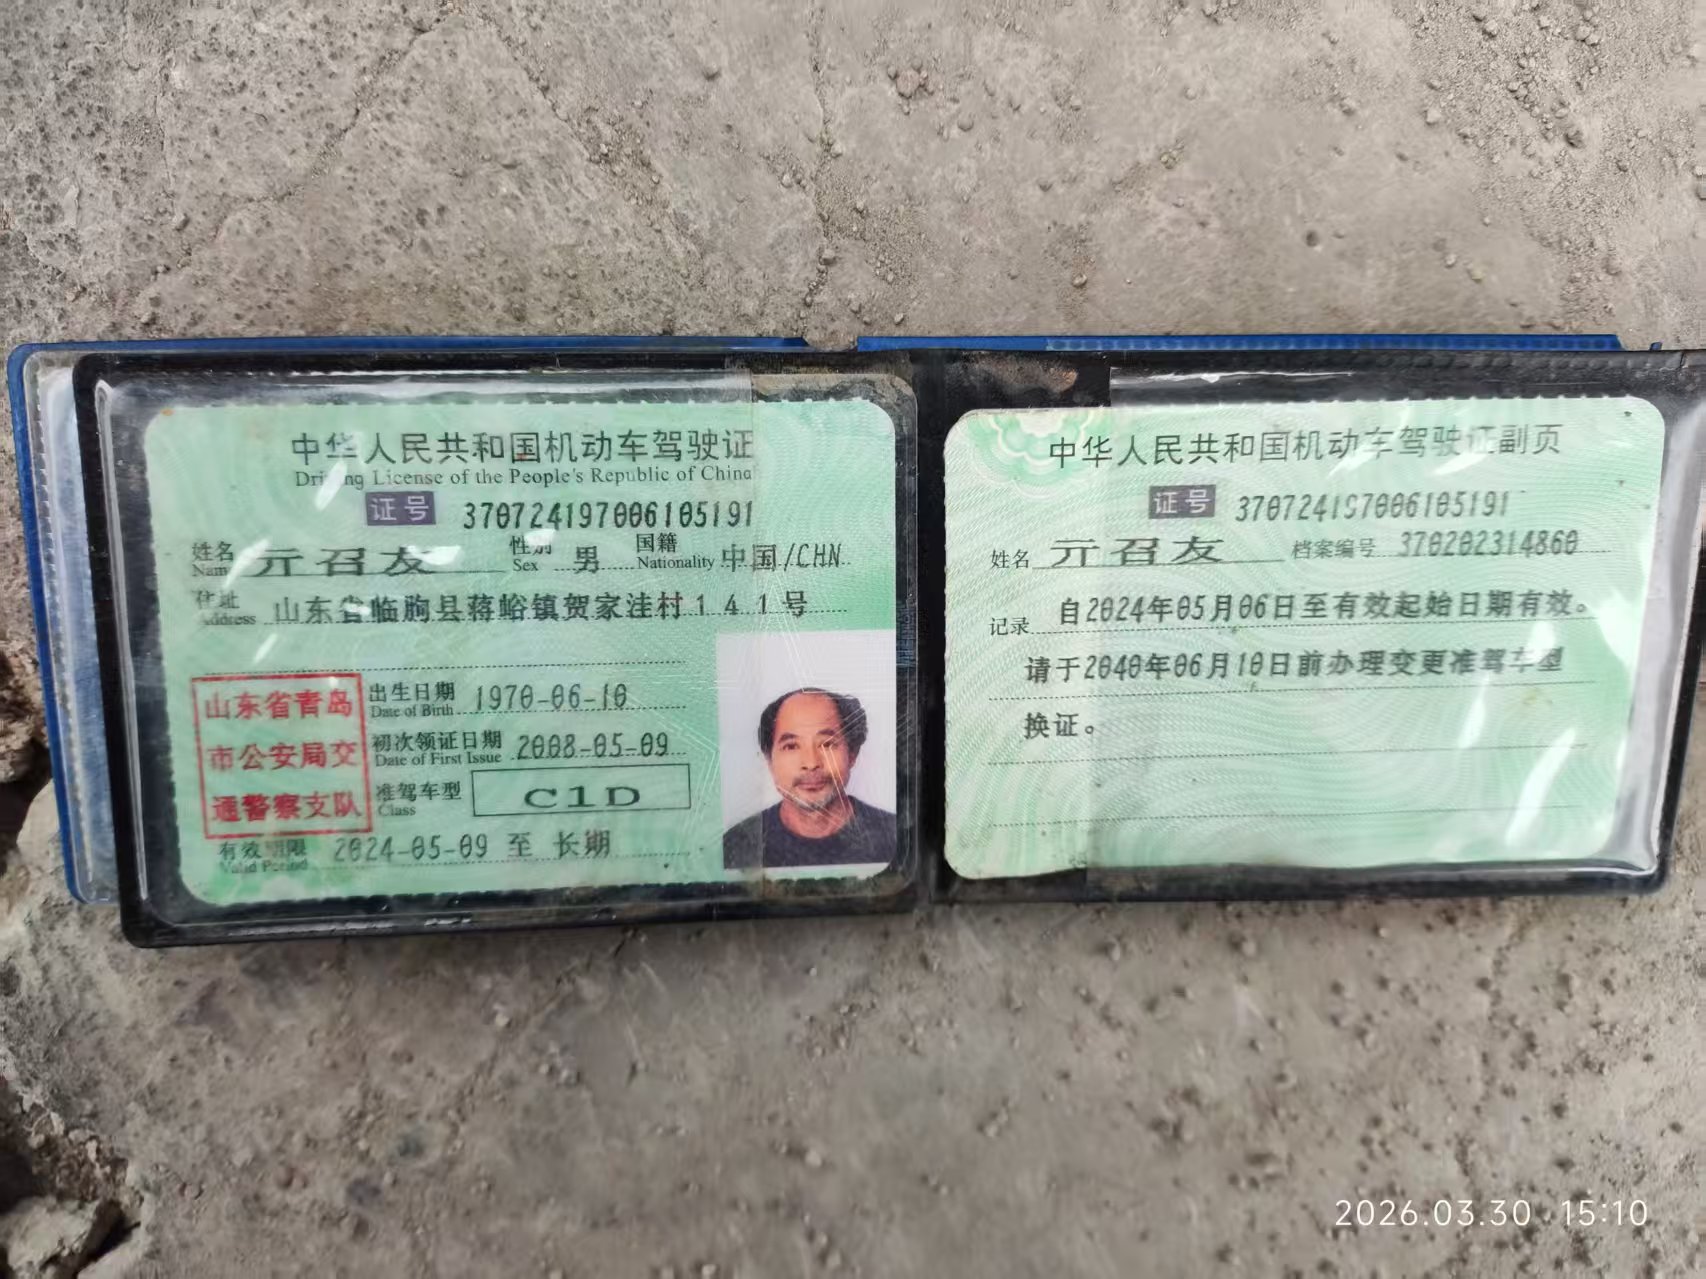 中华人民共和国机动车驾驶证
Driving License of the People's Republic of China
证号 370724197006105191
姓名 亓召友 性别 男 国籍 中国/CHN
Name Sex Nationality
住址 山东省临朐县蒋峪镇贺家洼村141号
Address
山东省青岛
市公安局交
通警察支队
出生日期 1970-06-10
Date of Birth
初次领证日期 2008-05-09
Date of First Issue
准驾车型 C1D
Class
有效期限 2024-05-09 至 长期
Valid Period
中华人民共和国机动车驾驶证副页
证号 370724197006105191
姓名 亓召友 档案编号 370202314860
记录 自2024年05月06日至有效起始日期有效。
请于2040年06月10日前办理变更准驾车型
换证。
2026.03.30 15:10